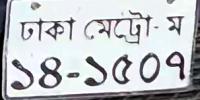 ঢাকা মেট্রো-ম
১৪-১৫০৭